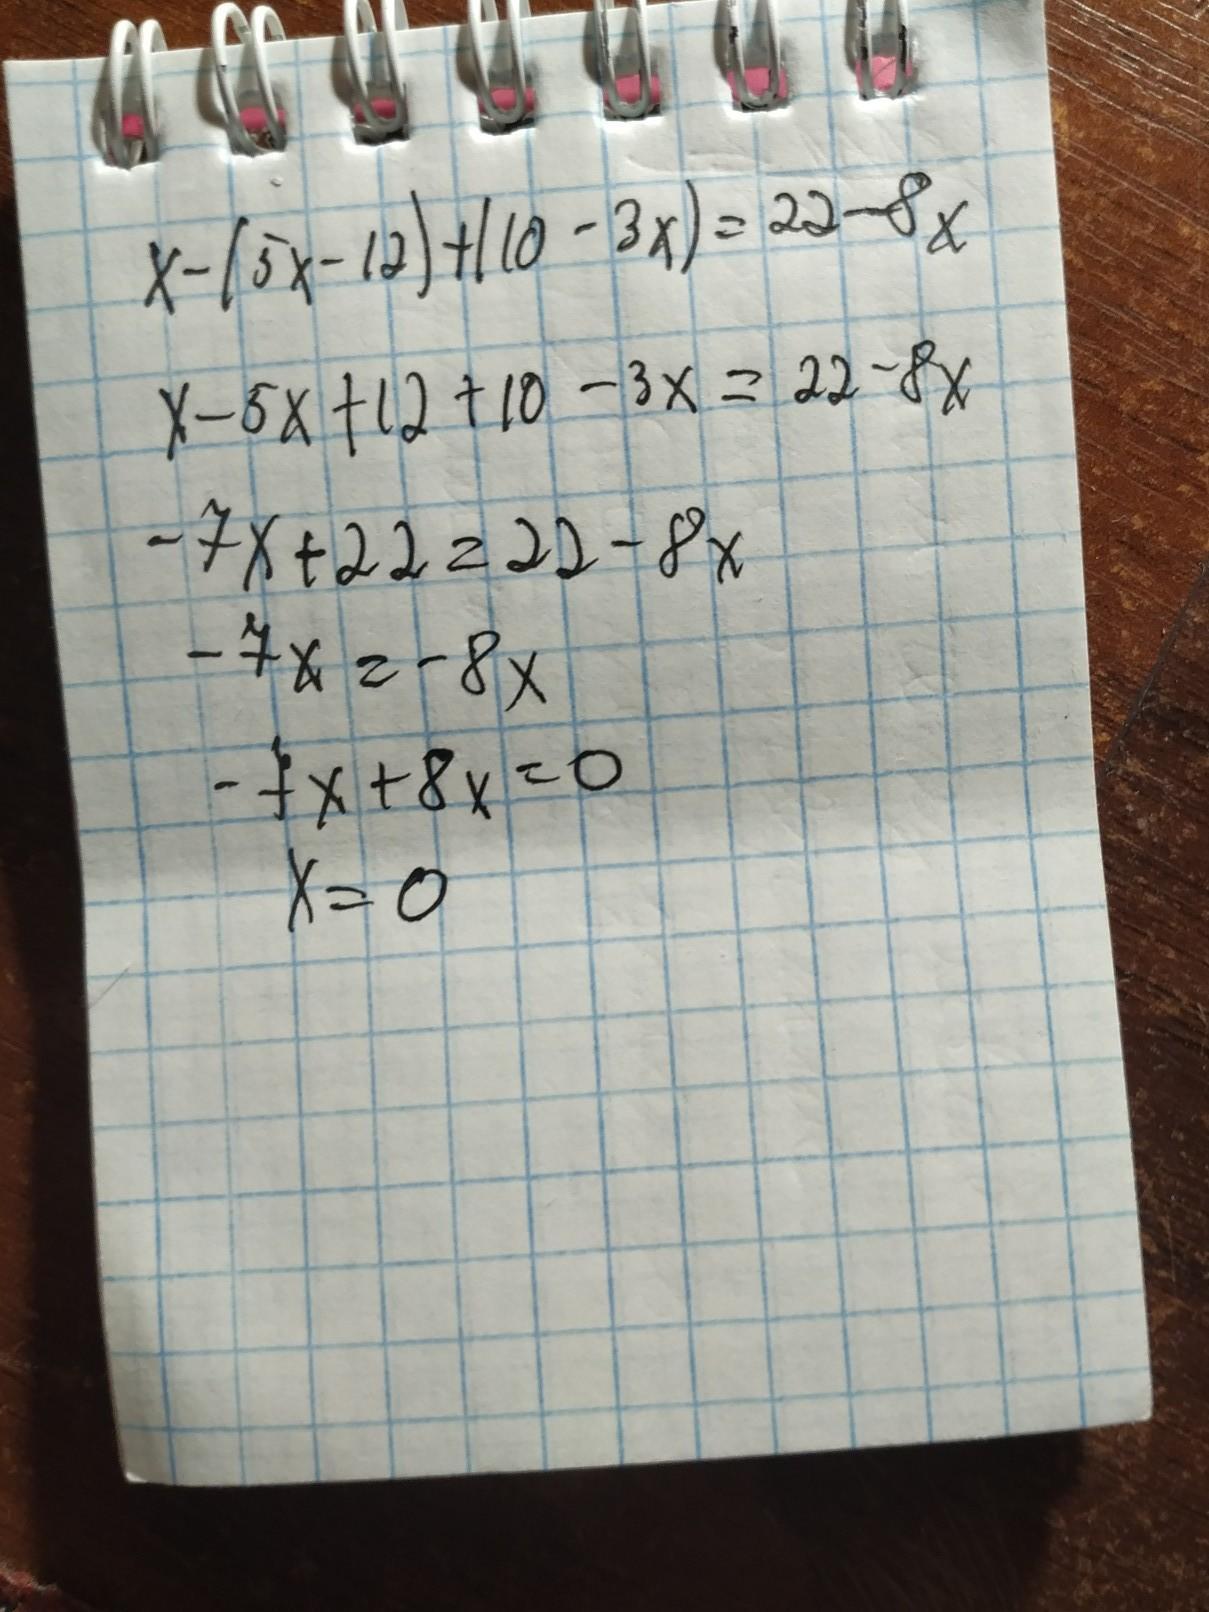 x-(5x-12)+(10-3x)=22-8x
x-5x+12+10-3x=22-8x
-7x+22=22-8x
-7x=-8x
-7x+8x=0
x=0